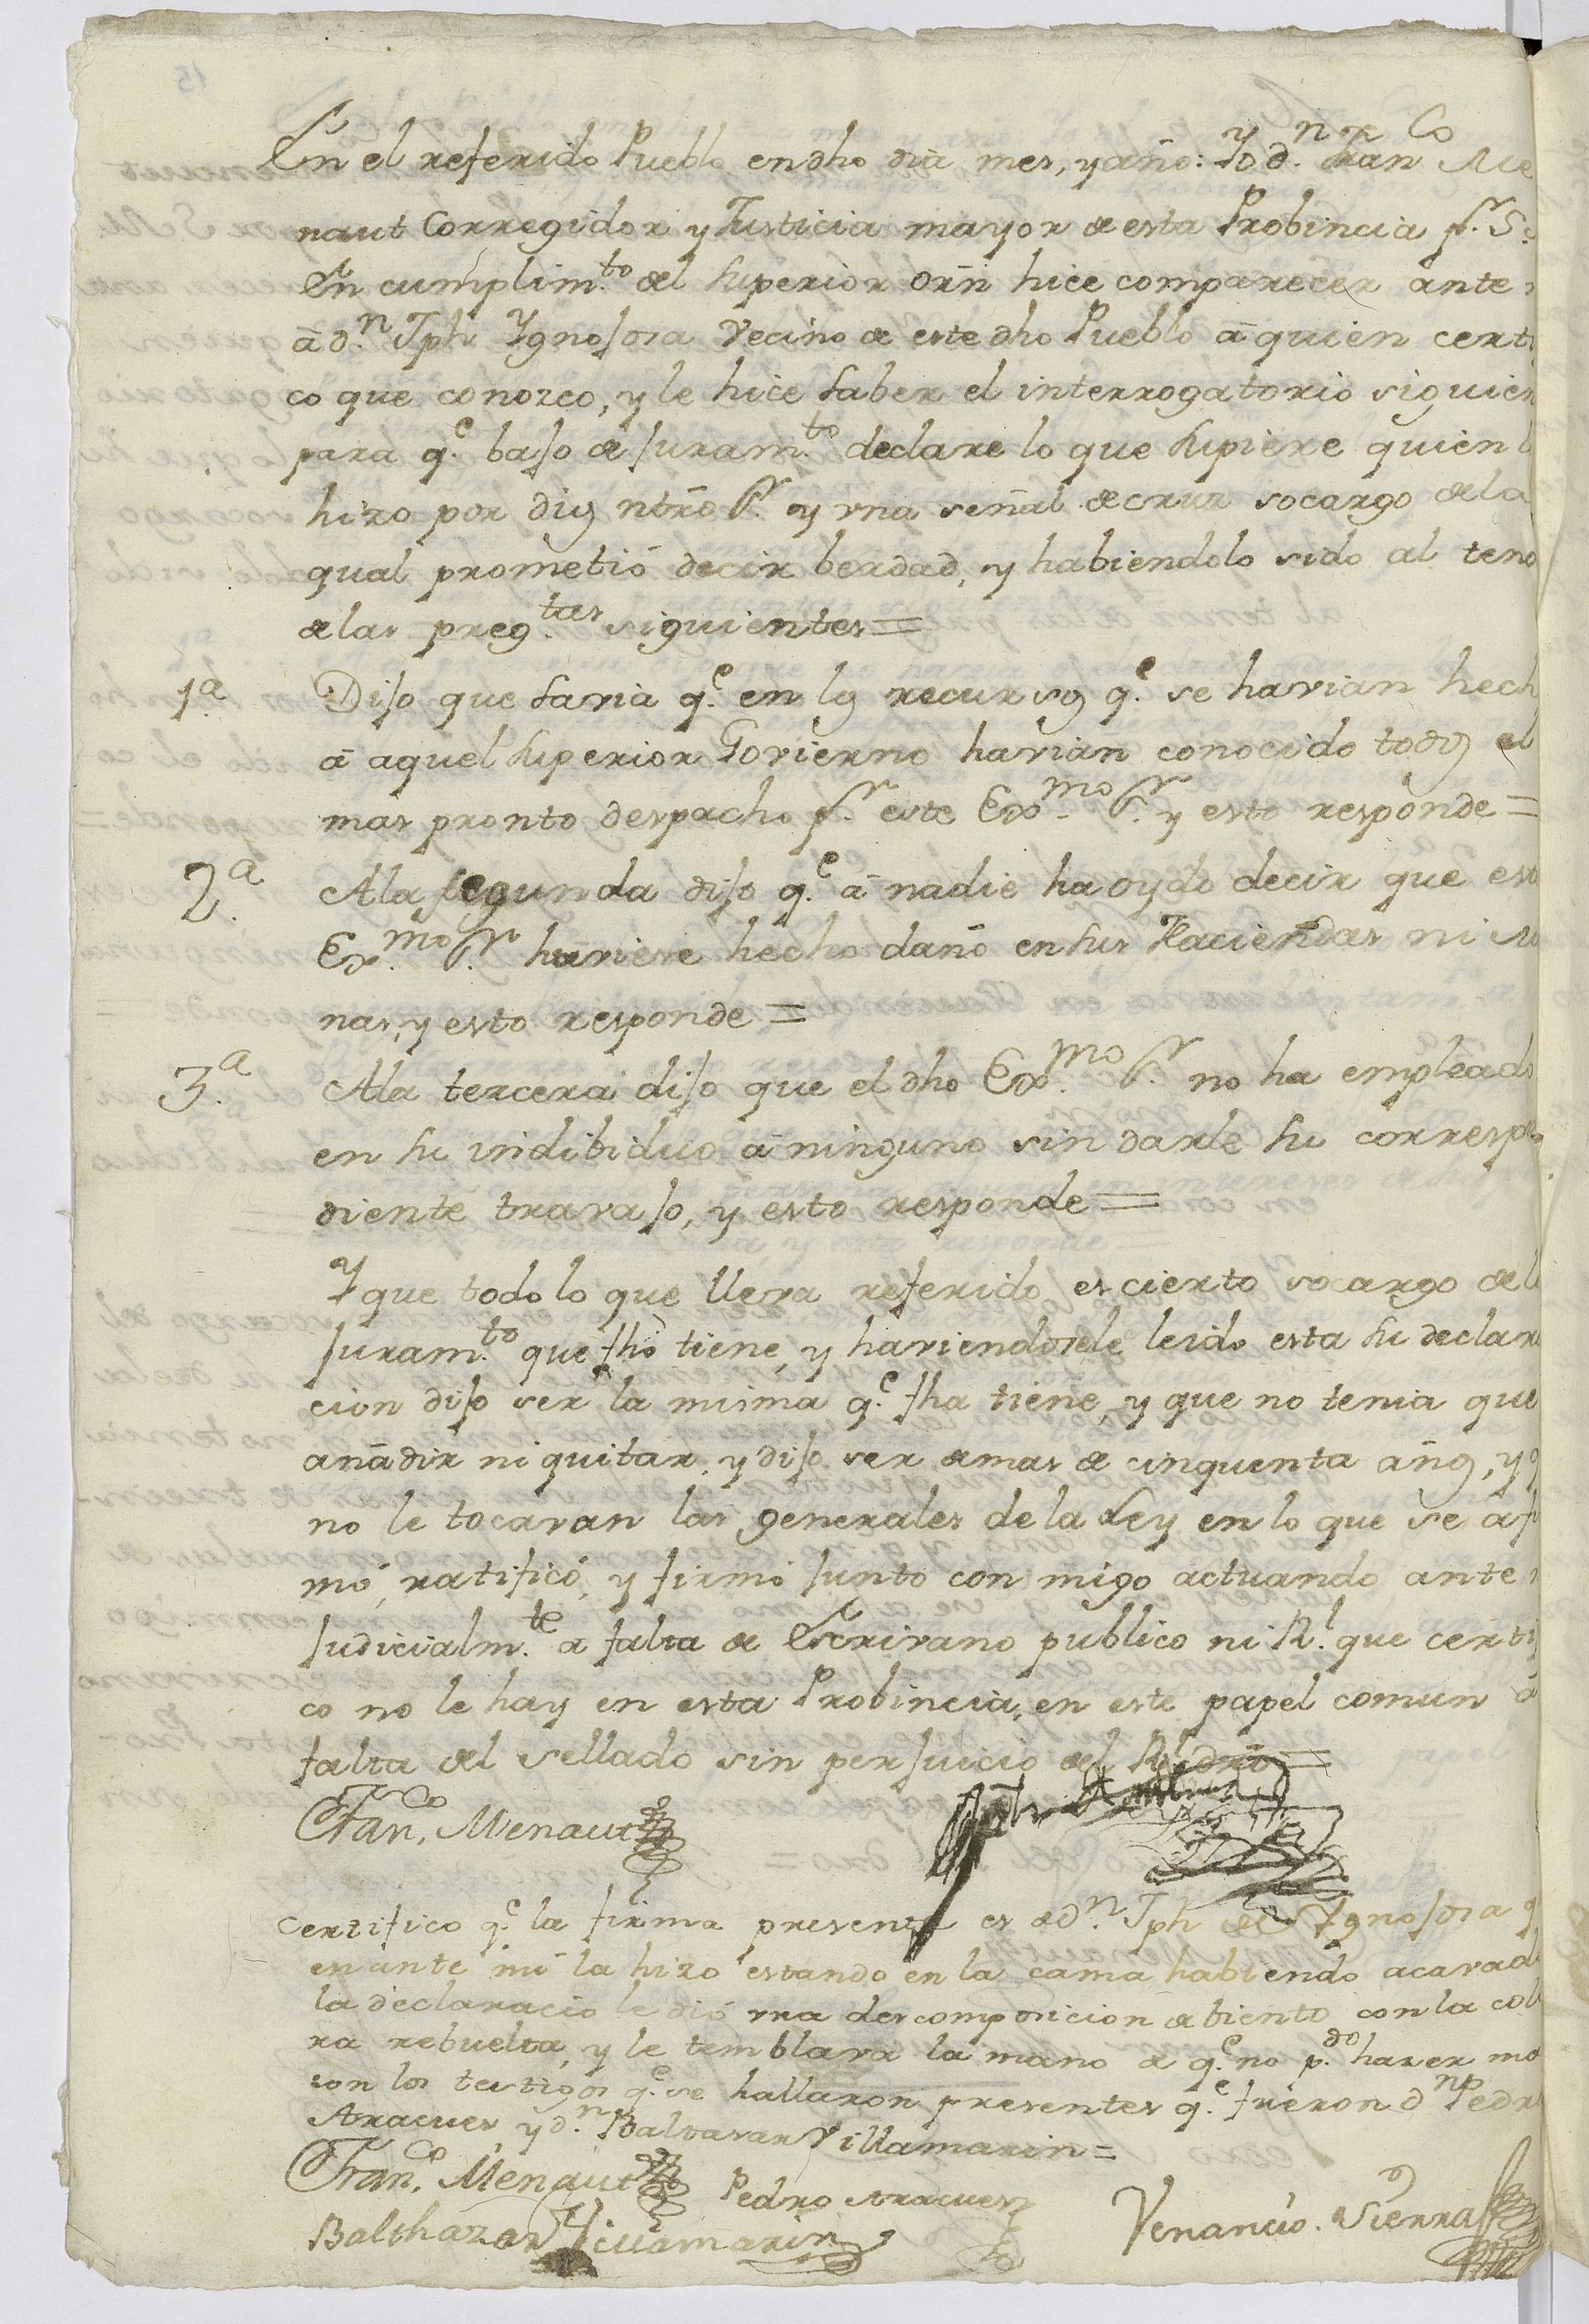 En el referido Pueblo en dho dia mes, y año: Yo d.n Fran.co Me
naut Corregidor y Justicia mayor de esta Probincia p.r S.
En cumplim.to del Superior orn hice comparecer ante
à d.n Jph Ygnojosa Vecino de este dho Pueblo à quien certi
co que conozco, y le hice saber el interrogatorio siguien
para q.e bajo de juram.to declare lo que supiere quien l
hizo por dios ntro S.r y vna señal de cruz socargo de la
qual prometió decir berdad, y habiendolo sido al teno
de las preg.tas siguientes =
1.a Dijo que savia q.e en los recursos q.e se havian hech
à aquel Superior Govierno havian conocido todos el
mas pronto despacho p.r este Exmo S.r y esto responde =
2.a A la segunda dijo q.e à nadie ha oydo decir que est
Ex.mo S.r huviese hecho daño en sus Haciendas ni Mi
nas, y esto responde =
3.a A la tercera dijo que el dho Ex.mo S.r no ha empleado
en su indibiduo à ninguno sin darle su correspon
diente travajo, y esto responde =
Y que todo lo que lleva referido es cierto socargo del
juram.to que fho tiene, y haviendosele leido esta su declara
cion dijo ser la misma q.e fha tiene, y que no tenia que
añadir ni quitar, y dijo ser de mas de cinquenta años, y q
no le tocavan las generales de la Ley en lo que se afi
mó, ratificó, y firmó junto con migo actuando ante
judicialm.te a falta de Escrivano publico ni R.l que certi
co no le hay en esta Probincia, en este papel comun à
falta del sellado sin perjuicio del R.l dro =
Fran.co Menaut
Certifico q.e la firma presente es de d.n Jph de Ygnojosa q
en ante mi la hizo estando en la cama habiendo acavado
la declaracio le dió vna descomposicion de biento con la cole
ra rebuelta, y le temblava la mano de q.e no p.do hacer mo
con los testigos q.e se hallaron presentes q.e fueron d.n Pedro
Aracues y d.n Baltasar Villamarin =
Fran.co Menaut Pedro Aracues
Balthazar Villamarin Venancio Sierra